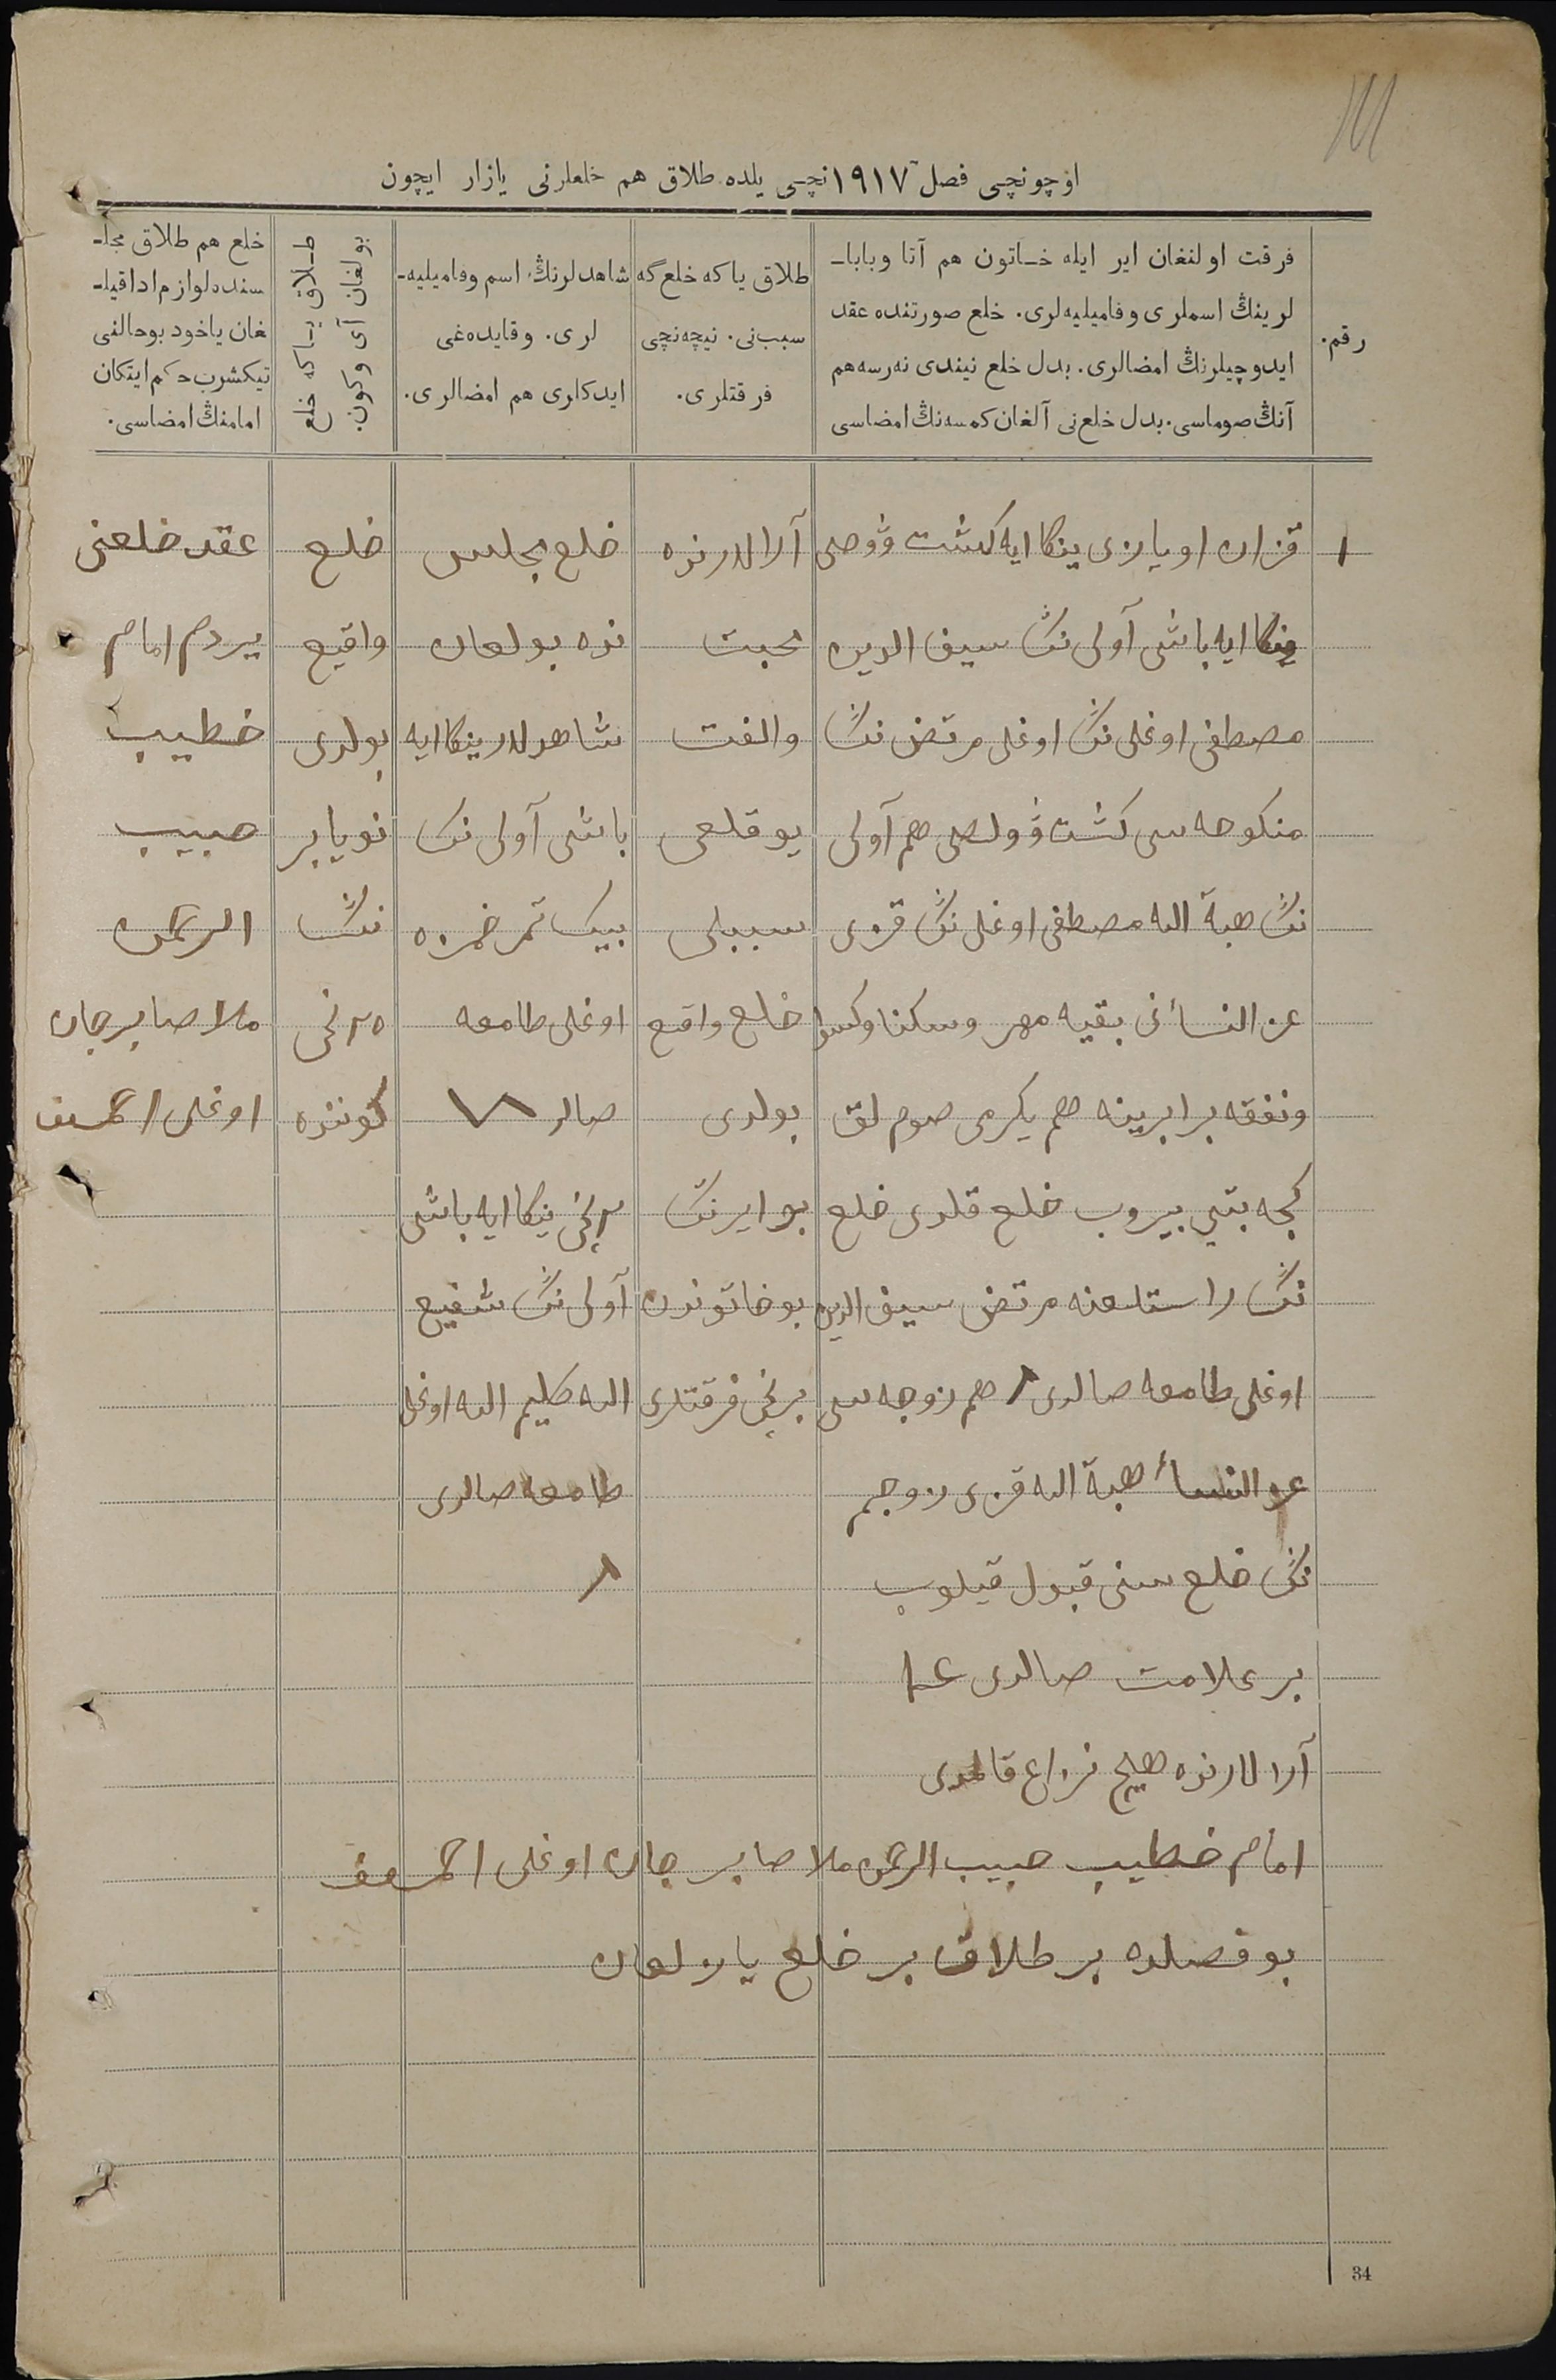 اوچونچی فصل ١٩١٧نچی یلده طلاق هم خلعلرنی یازار ایچون
رقم.
فرقت اولنغان ایر ایله خاتون هم آتا وبابا-
لرینڭ اسملری وفامیلیه‌لری. خلع صورتنده عقد
ایدوچیلرنڭ امضالری. بدل خلع نیندی نه‌رسه هم
آنڭ صوماسی. بدل خلع‌نی آلغان کمسه‌نڭ امضاسی
طلاق یاکه خلع‌گه
سبب‌نی. نیچه‌نچی
فرقتلری.
شاهدلرنڭ اسم وفامیلیه-
لری. وقایده‌غی
ایدکلری هم امضالری.
طلاق یاکه خلع
بولغان آی وکون
خلع هم طلاق مجل-
سنده لوازم ادا قیل-
غان یاخود بوحالنی
تیکشرب حکم ایتکان
امامنڭ امضاسی.
١
قزان اویازی ینکا ایه کشت ڤوصی
ینکا ایه باشی آولی نڭ سیف الدین
مصطفی اوغلی نڭ اوغلی مرتضی نڭ
منکوحه سی کشت ڤولصی هم آولی
نڭ هبة الله مصطفی اوغلی نڭ قزی
عز النسأنی بقیه مهر وسکنا وکسوا
ونفقه برابرینه هم یکرمی صوم لق
کجه بتی بیروب خلع قلدی خلع
نڭ راستلغنه مرتضی سیف الدین
اوغلی طامغه صالدی هم زوجه سی
عز النسأ هبة الله قزی زوجم
نڭ خلع سنی قبول قیلوب
بر علامت صالدی
آرا لارنده هیچ نزاع قالمدی
آرالارنده
محبت
والفت
یوقلغی
سببلی
خلع واقع
بولدی
بو ایرنڭ
بو خاتوندن
برنچی فرقتلری
خلع مجلس
نده بولغان
شاهدلار ینکا ایه
باشی آولی نڭ
بیک تمر حمزه
اوغلی طامغه
صالد
٢نچی ینکا ایه باشی
آولی نڭ شفیع
الله کلیم الله اوغلی
طامغه صالدی
خلع
واقیع
بولدی
نویابر
نڭ
٢٥ نچی
کوننده
عقد خلعنی
یردم امام
خطیب
حبیب
الرحمن
ملا صابرجان
اوغلی
امام خطیب حبیب الرحمن ملا صابر جان اوغلی
بو فصلده بر طلاق بر خلع یازلغان
34